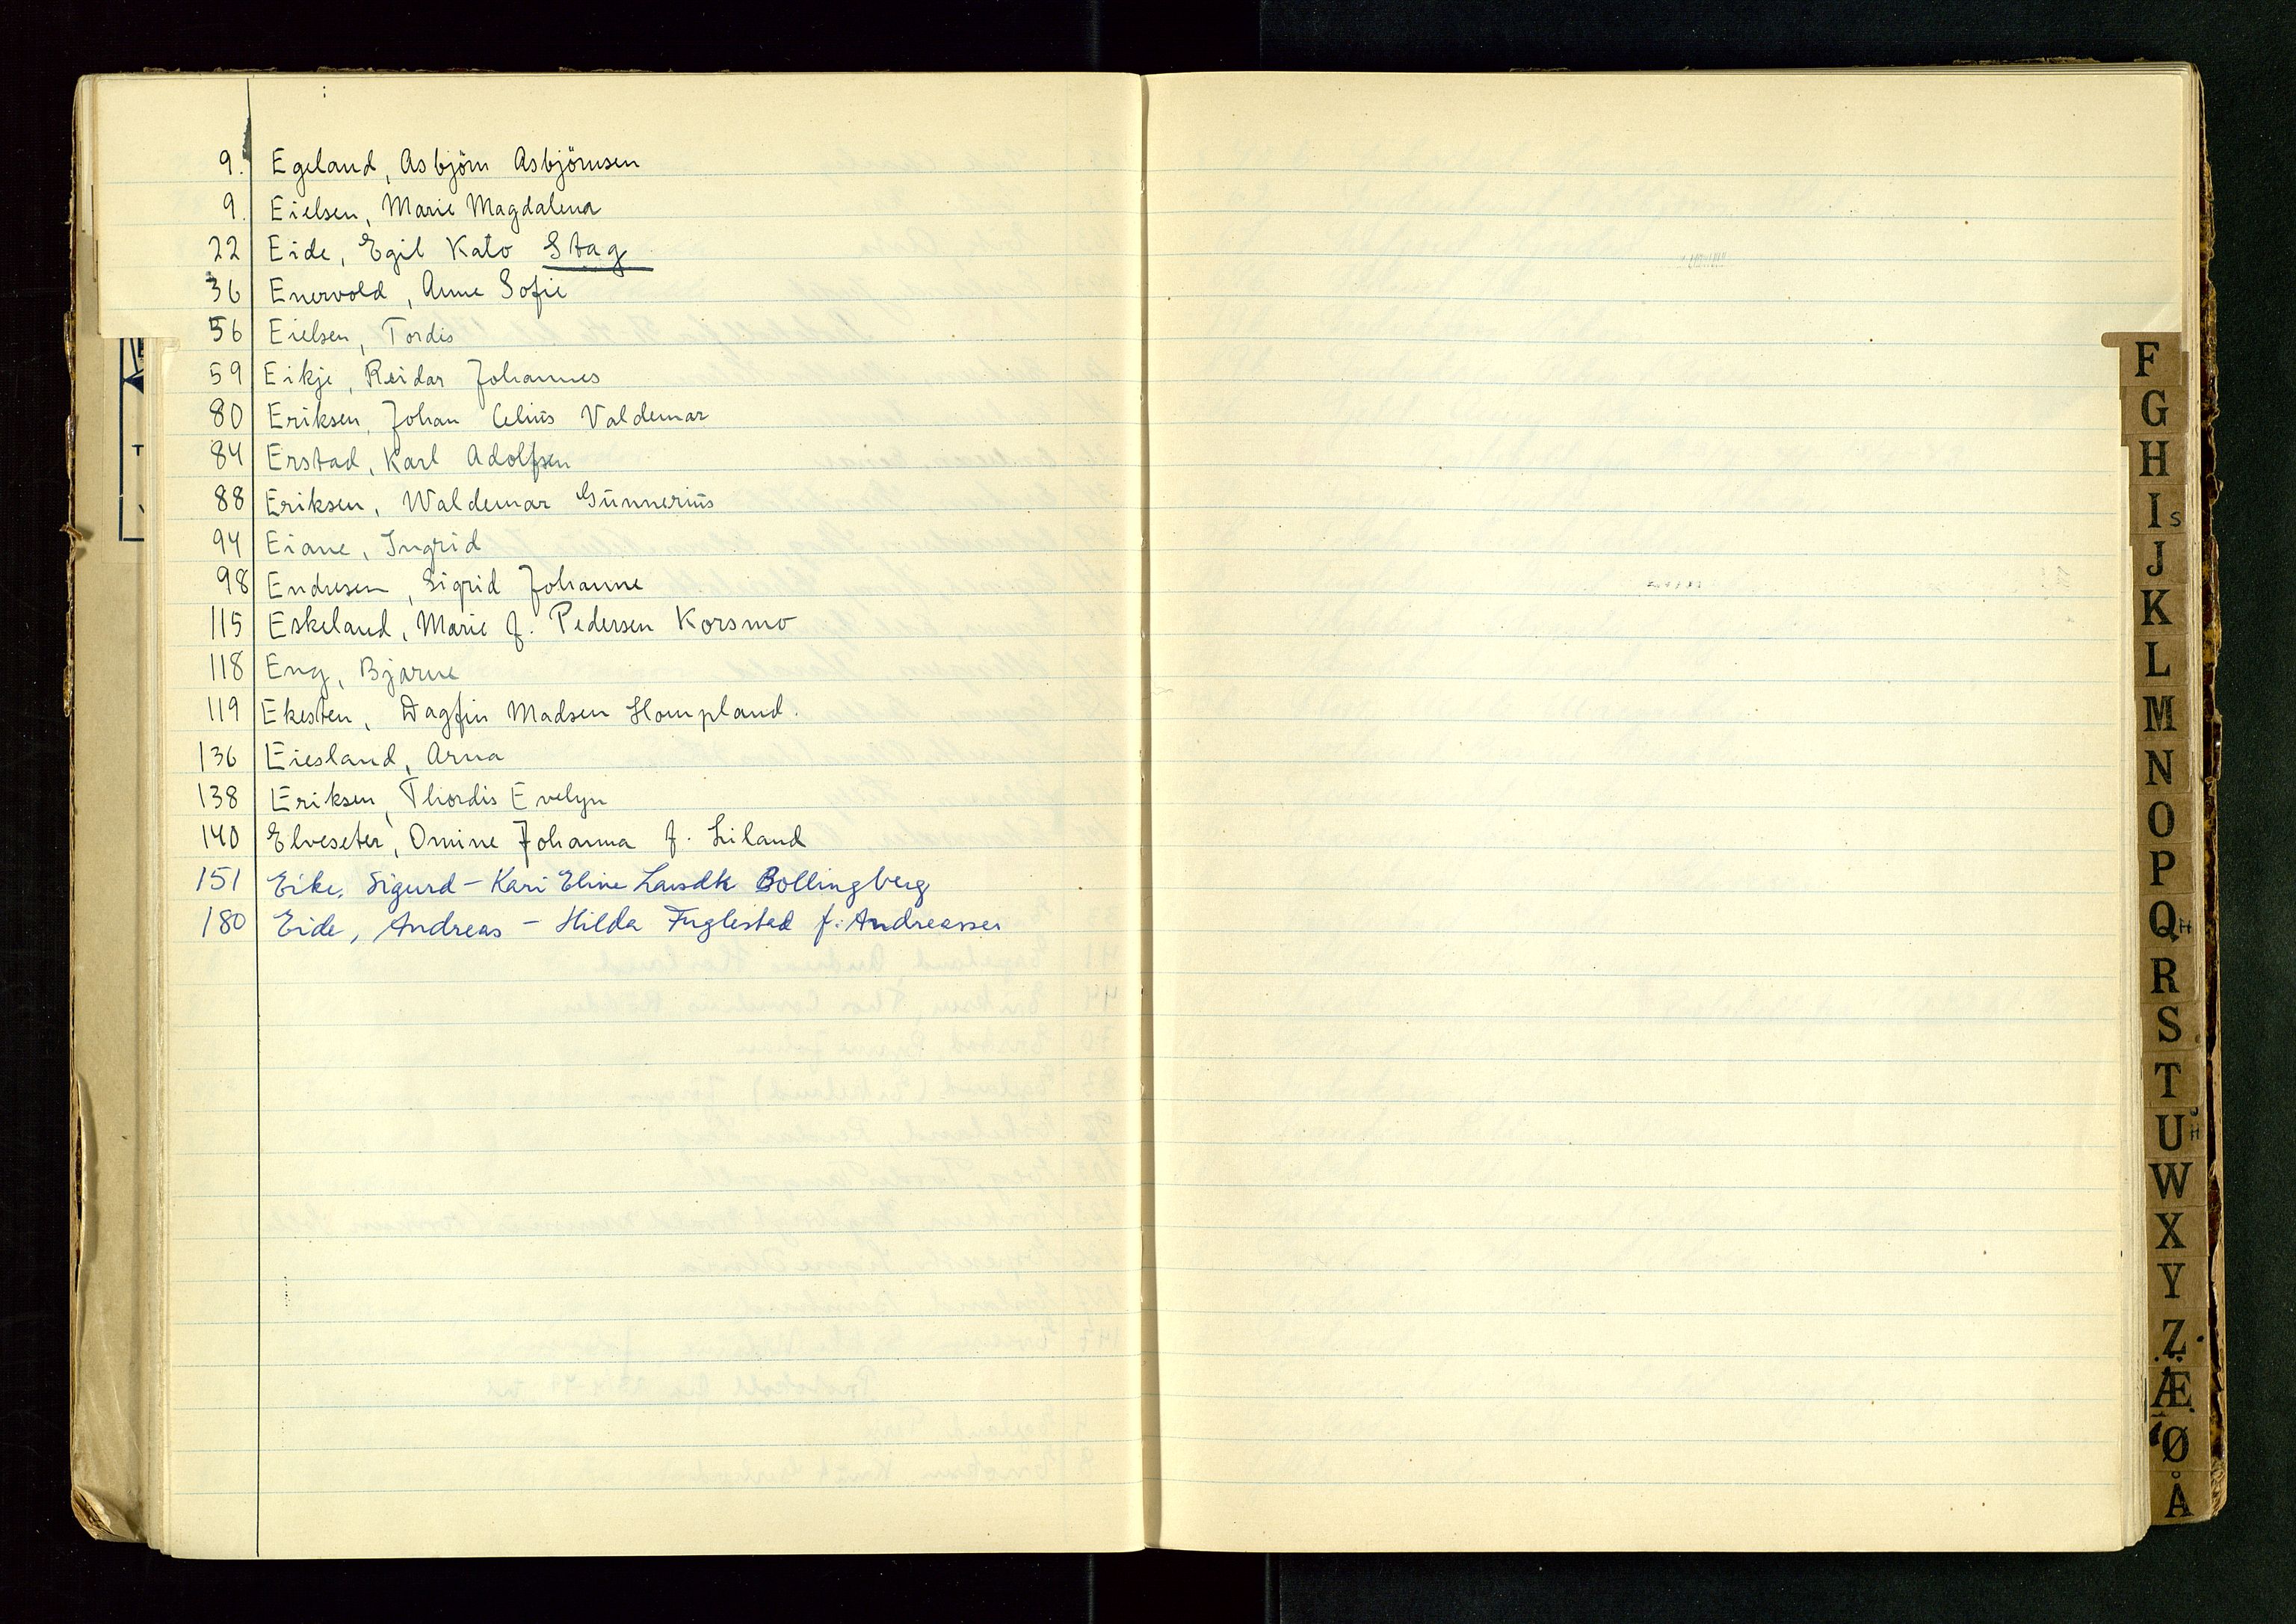 9. Egeland, Asbjörn Asbjörnsen
9. Eielsen, Marie Magdalena
22 Eide, Egil Kato Stag
36 Enervold, Anne Sofie
56 Eielsen, Tordis
59 Eikje, Reidar Johannes
80 Eriksen, Johan Celius Valdemar
84 Erstad, Karl Adolfsen
88 Eriksen, Waldemar Gunnerius
94 Eiane, Ingrid
98 Endresen, Sigrid Johanne
115 Eskeland, Marie f. Pedersen Korsmo
118 Eng, Bjarne
119 Ekesten, Dagfin Madsen Hompland.
136 Eiesland, Arna
138 Eriksen, Thordis Evelyn
140 Elveseter, Omine Johanna f. Liland
151 Eike, Sigurd - Kari Eline Bollingberg
180 Eide, Andreas - Hilda Fuglestad f. Andreassen
F
G
H
I s
J
K
L
M
N
O
P
Q H
R
S
T
U H
W
X
Y
Z
Æ
Ø
Å